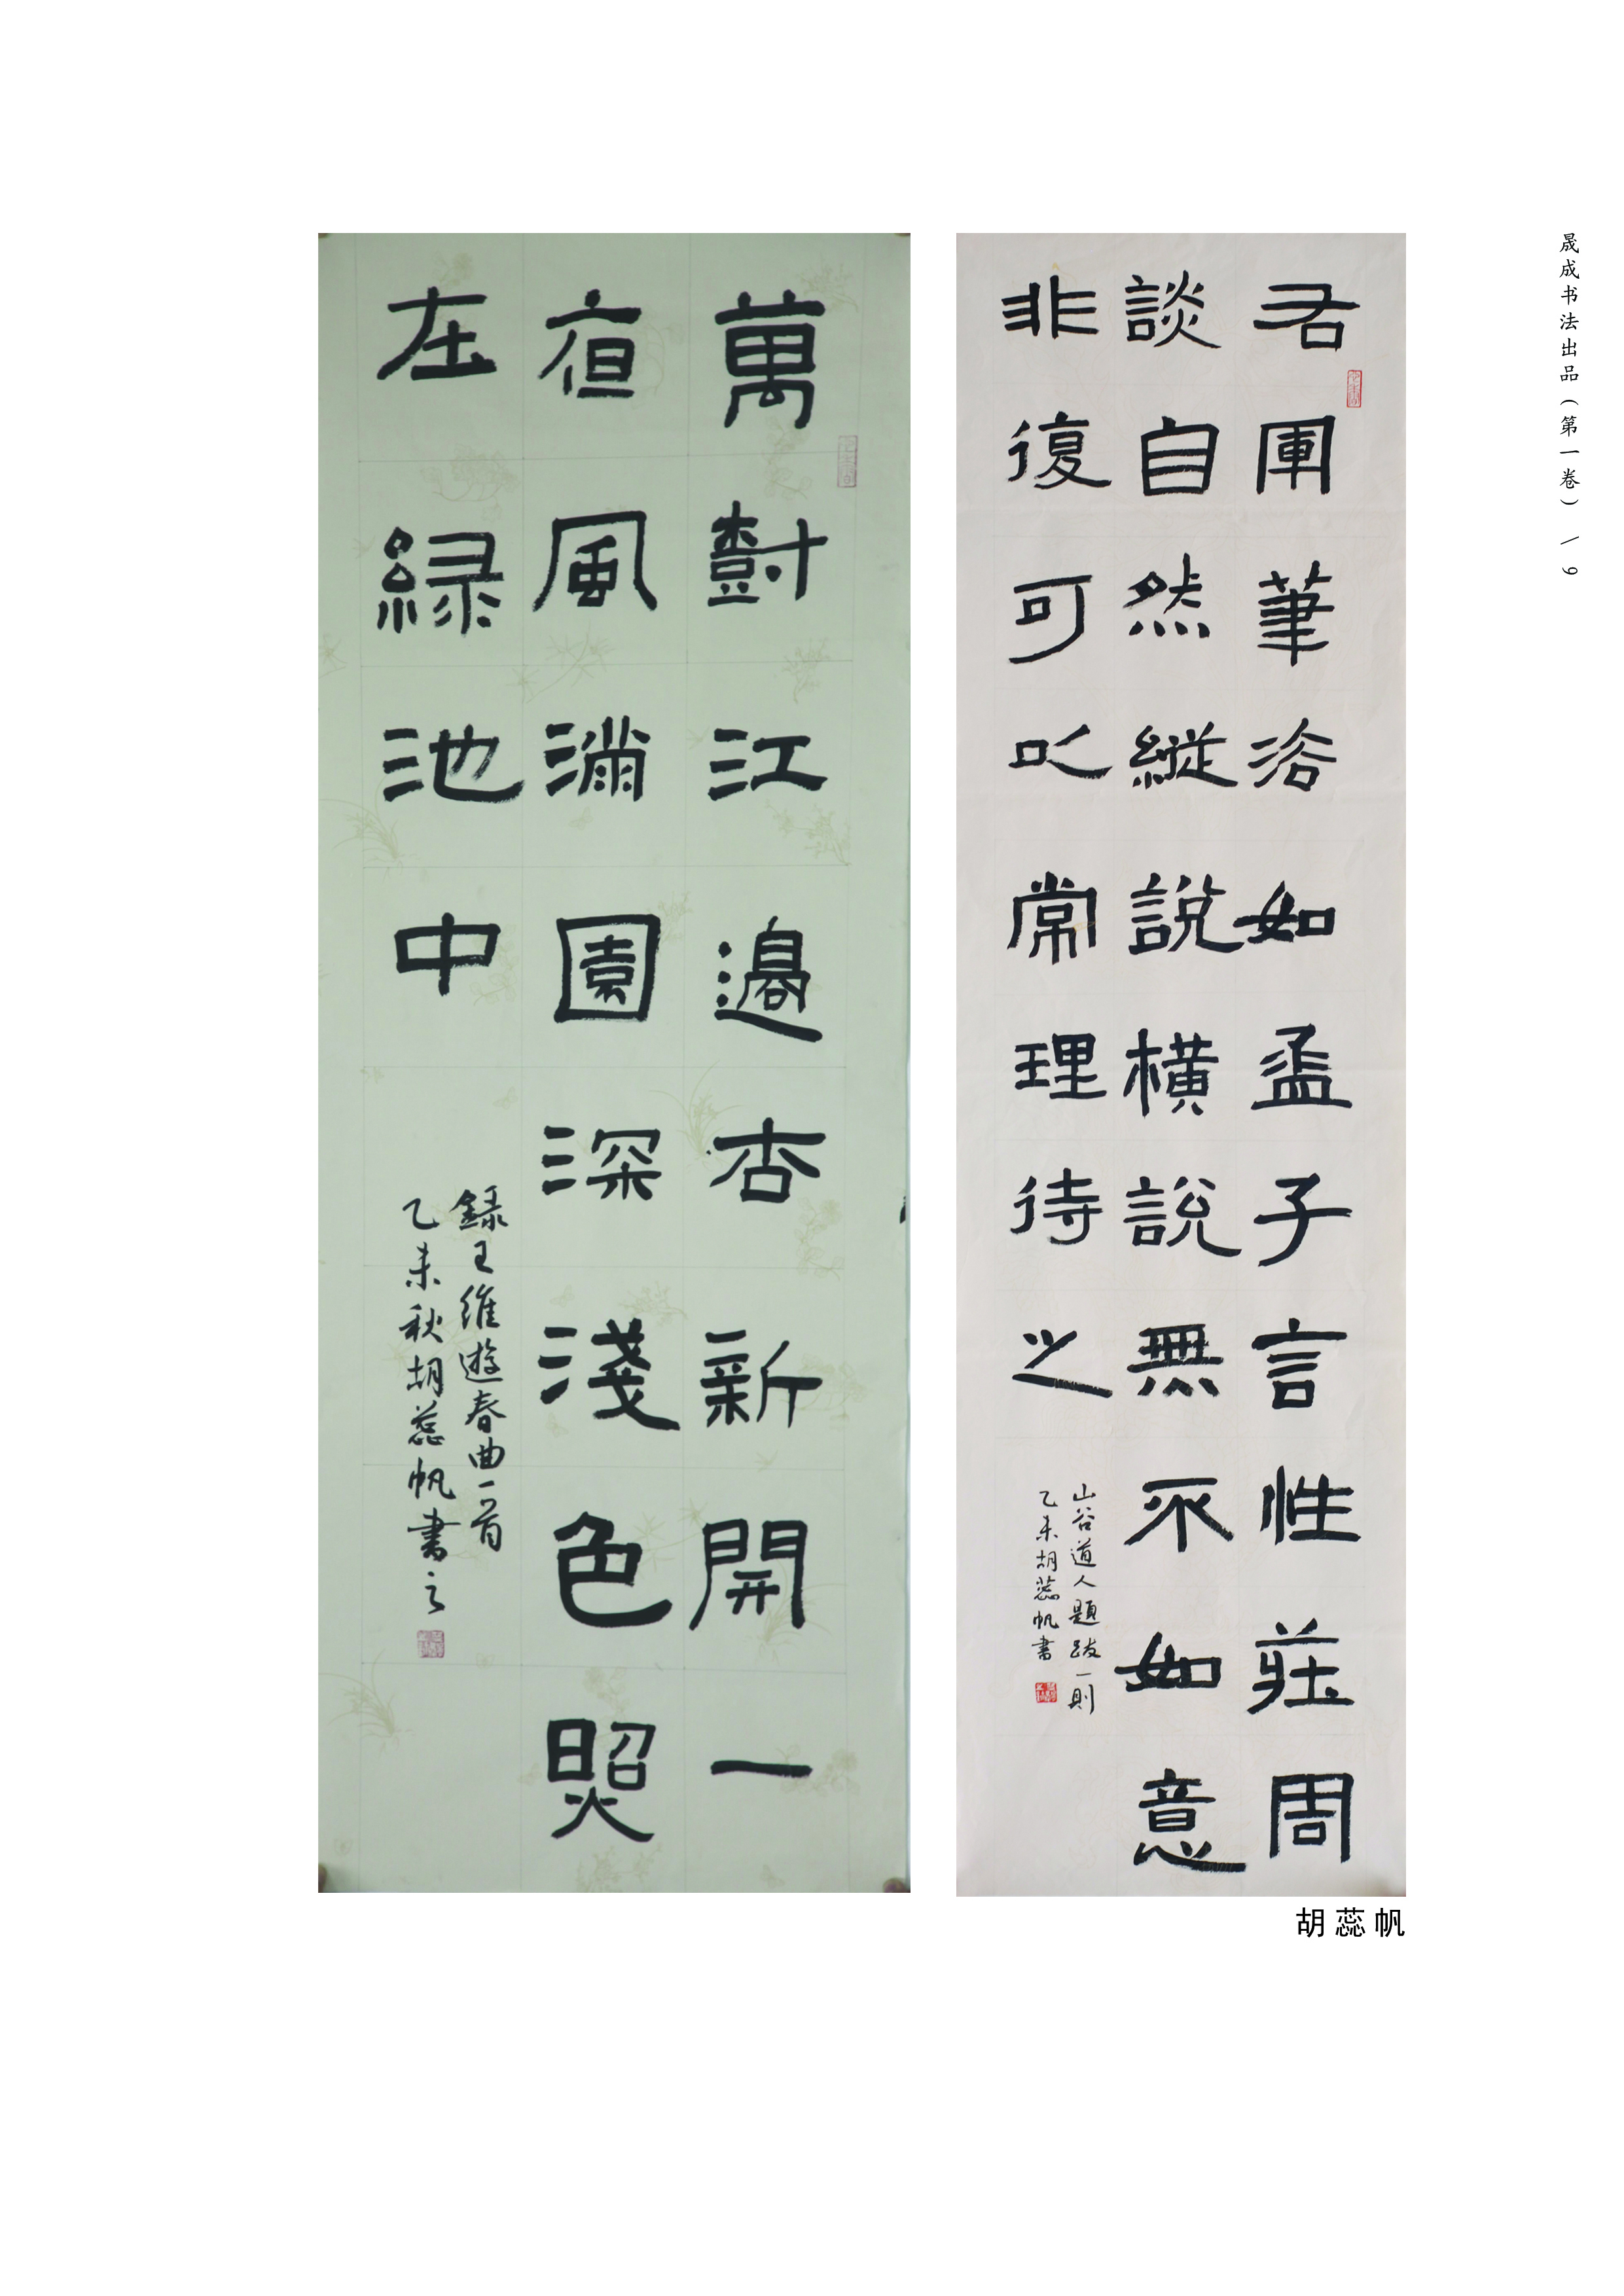 晟成书法出品(第一卷) \ 9
右軍筆法如孟子言性莊周
談自然縱說橫說無不如意
非復可以常理待之
山谷道人題跋一則
乙未胡蕊帆書
萬樹江邊杏新開一
夜風滿園深淺色照
在綠池中
録王維遊春曲一首
乙未秋胡蕊帆書之
胡蕊帆